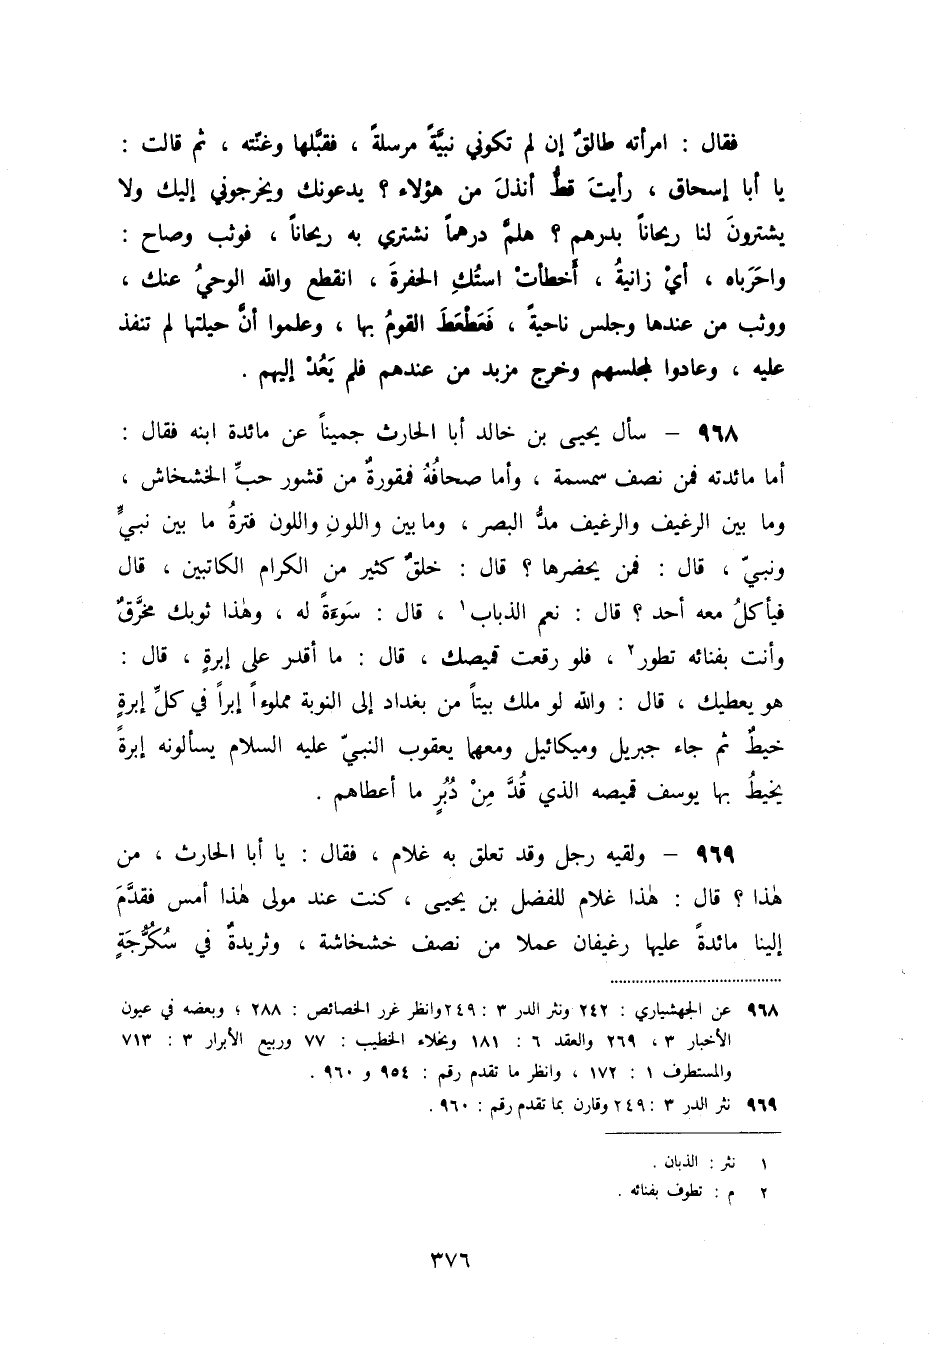 فقال : امرأته طالقٌ إن لم تكوني نبيَّةً مرسلةً ، فقبَّلها وغنّته ، ثم قالت :
يا أبا إسحاق ، رأيتَ قطُّ أنذلَ من هؤلاء ؟ يدعونك ويخرجوني إليك ولا
يشترونَ لنا ريحاناً بدرهمٍ ؟ هلمَّ درهماً نشتري به ريحاناً ، فوثب وصاح :
واحَرَباه ، أيْ زانيةُ ، أخطأتْ استُكِ الحفرةَ ، انقطع والله الوحيُ عنك ،
ووثب من عندها وجلس ناحيةً ، فَعَطْعَطَ القومُ بها ، وعلموا أنَّ حيلتها لم تنفذ
عليه ، وعادوا لمجلسهم وخرج مزبد من عندهم فلم يَعُدْ إليهم .
٩٦٨ – سأل يحيى بن خالد أبا الحارث جميناً عن مائدة ابنه فقال :
أما مائدته فمن نصف سمسمة ، وأما صحافُهُ فمقورةٌ من قشور حبِّ الخشخاش ،
وما بين الرغيف والرغيف مدُّ البصر ، وما بين واللونِ واللون فترةُ ما بين نبيٍّ
ونبيّ ، قال : فمن يحضرها ؟ قال : خلقٌ كثير من الكرام الكاتبين ، قال
فيأكلُ معه أحد ؟ قال : نعم الذباب ١ ، قال : سَوءَةً له ، وهٰذا ثوبك مخرَّقٌ
وأنت بفنائه تطور ٢ ، فلو رقعت قميصك ، قال : ما أقدر على إبرةٍ ، قال :
هو يعطيك ، قال : والله لو ملك بيتاً من بغداد إلى النوبة مملوءاً إبراً في كلِّ إبرةٍ
خيطٌ ثم جاء جبريل وميكائيل ومعهما يعقوب النبيّ عليه السلام يسألونه إبرةً
يخيطُ بها يوسف قميصه الذي قُدَّ مِنْ دُبُرٍ ما أعطاهم .
٩٦٩ – ولقيه رجل وقد تعلق به غلام ، فقال : يا أبا الحارث ، من
هٰذا ؟ قال : هٰذا غلام للفضل بن يحيى ، كنت عند مولى هٰذا أمس فقدَّمَ
إلينا مائدةً عليها رغيفان عملا من نصف خشخاشة ، وثريدةٌ في سُكُرُّجَةٍ
٩٦٨ عن الجهشياري : ٢٤٢ ونثر الدر ٣ : ٢٤٩ وانظر غرر الخصائص : ٢٨٨ ؛ وبعضه في عيون
الأخبار ٣ ، ٢٦٩ والعقد ٦ : ١٨١ وبخلاء الخطيب : ٧٧ وربيع الأبرار ٣ : ٧١٣
والمستطرف ١ : ١٧٢ ، وانظر ما تقدم رقم : ٩٥٤ و ٩٦٠ .
٩٦٩ نثر الدر ٣ : ٢٤٩ وقارن بما تقدم رقم : ٩٦٠ .
١ نثر : الذبان .
٢ م : تطوف بفنائه .
٣٧٦